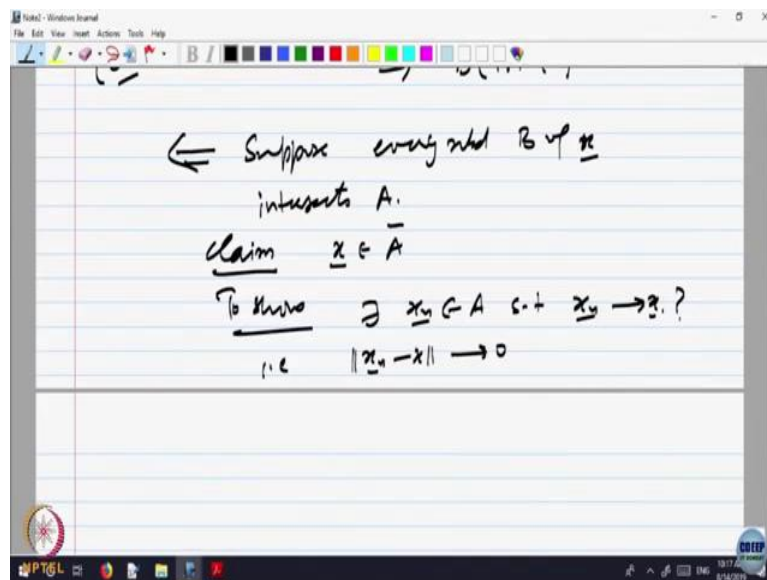 Note2 - Windows Journal
File Edit View Insert Actions Tools Help
B I
⇐ Suppose every nbd B of x
intersects A.
Claim x ∈ A̅
To show ∃ xₙ ∈ A s.t xₙ → x. ?
i.e ‖xₙ - x‖ → 0
NPTEL
CDEEP
ENG
8/14/2019